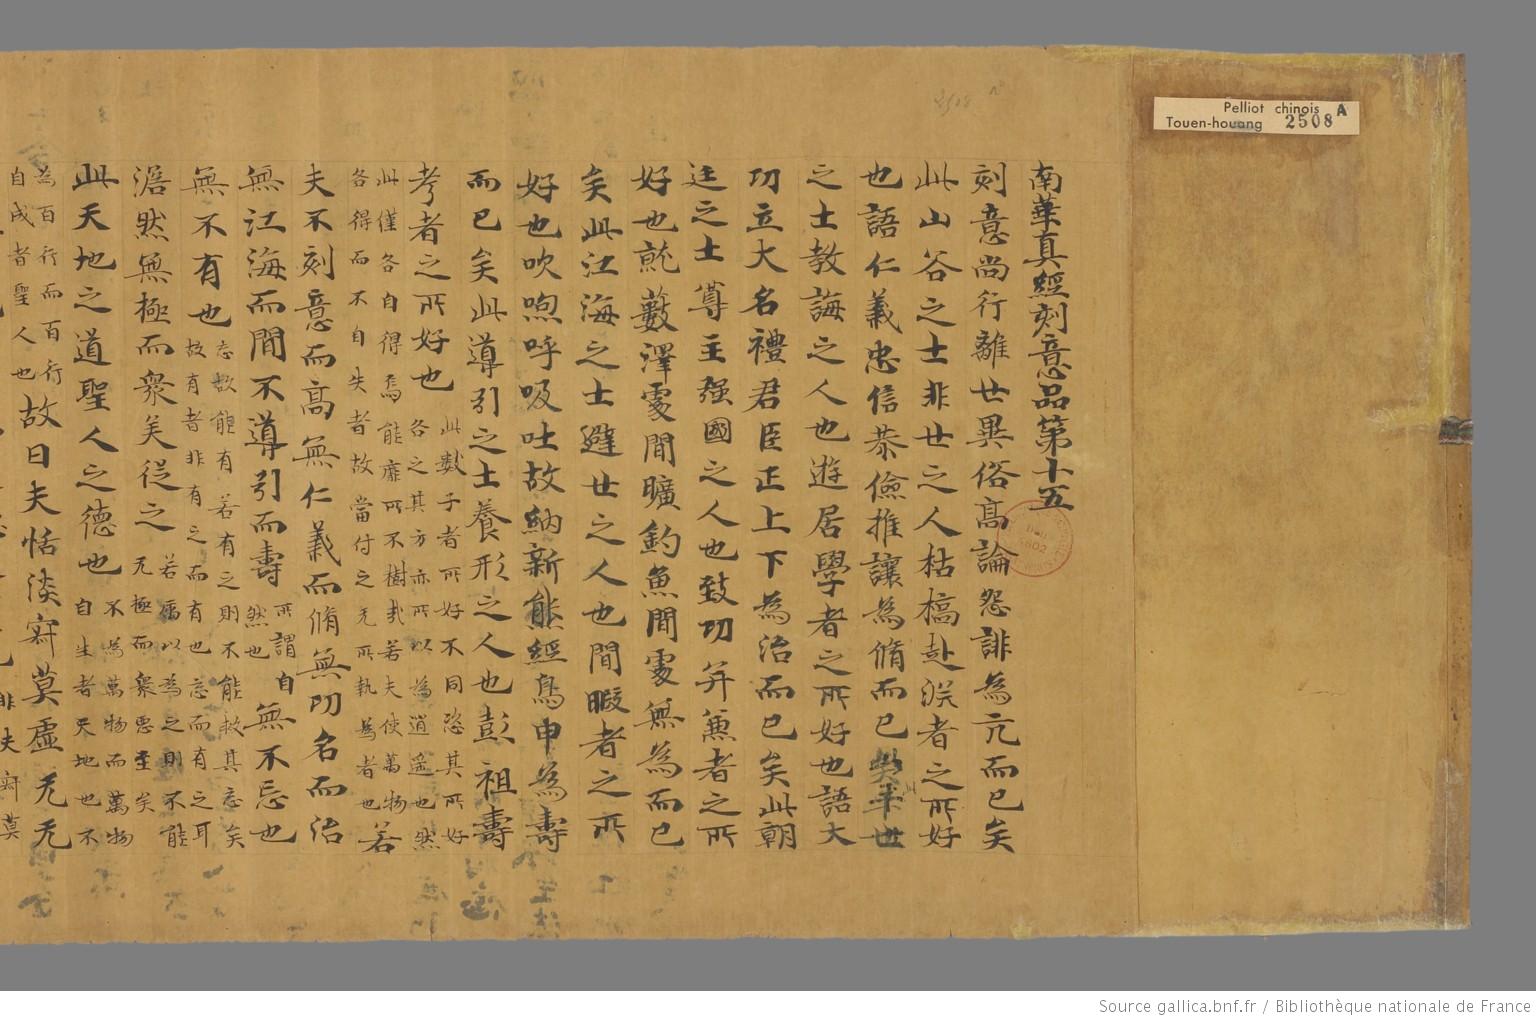 Pelliot chinois A
Touen-houang 2508
南華真經刻意品第十五
刻意尚行離世異俗高論怨誹為亢而已矣
此山谷之士非世之人枯槁赴淵者之所好
也語仁義忠信恭儉推讓為脩而已矣此平世
之士教誨之人也遊居學者之所好也語大
功立大名禮君臣正上下為治而已矣此朝
廷之士尊主强國之人也致功并兼者之所
好也就藪澤處間曠釣魚間處無為而已
矣此江海之士避世之人也間暇者之所
好也吹呴呼吸吐故納新熊經鳥申為壽
而已矣此導引之士養形之人也彭祖壽
考者之所好也此數子者所好不同恣其所好
各之其方亦所以為逍遥也然
此僅各自得焉能靡所不樹哉若夫使萬物
各得而不自失者故當付之无所執為者也若
夫不刻意而高無仁義而脩無功名而治
無江海而間不導引而壽所謂自
然也無不忘也
無不有也忘故能有若有之則不能救其忘矣
故有者非有之而有也忘而有之耳
澹然無極而衆美從之若厲以為之則不能
无極而衆惡至矣
此天地之道聖人之德也不為萬物而萬物
自生者天地也不
為百行而百行
自成者聖人也故曰夫恬淡寂莫虚无无
Source gallica.bnf.fr / Bibliothèque nationale de France